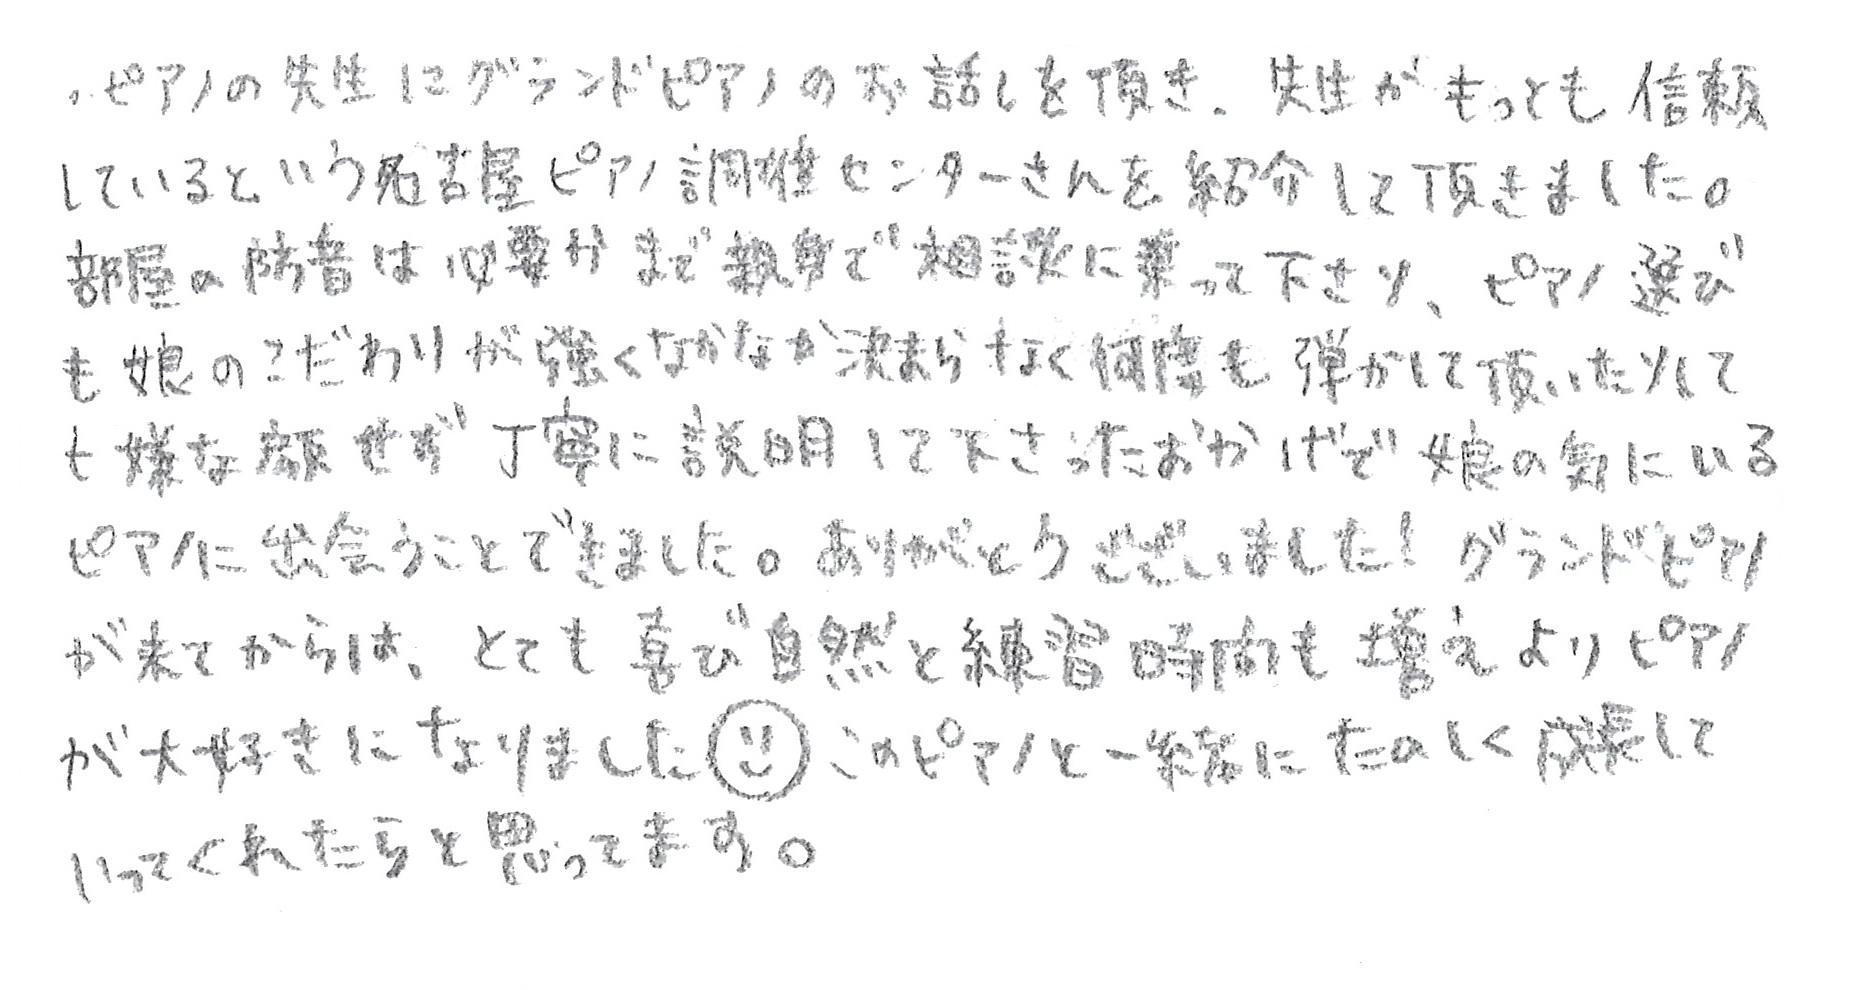 ・ピアノの先生にグランドピアノのお話しを頂き、先生がもっとも信頼
しているという名古屋ピアノ調律センターさんを紹介して頂きました。
部屋の防音は必要かまで親身で相談に乗って下さり、ピアノ選び
も娘のこだわりが強くなかなか決まらなく何度も弾かして頂いたりして
も嫌な顔せず丁寧に説明して下さったおかげで娘の気にいる
ピアノに出会うことできました。ありがとうございました！グランドピアノ
が来てからは、とても喜び自然と練習時間も増えよりピアノ
が大好きになりました☺このピアノと一緒にたのしく成長して
いってくれたらと思ってます。